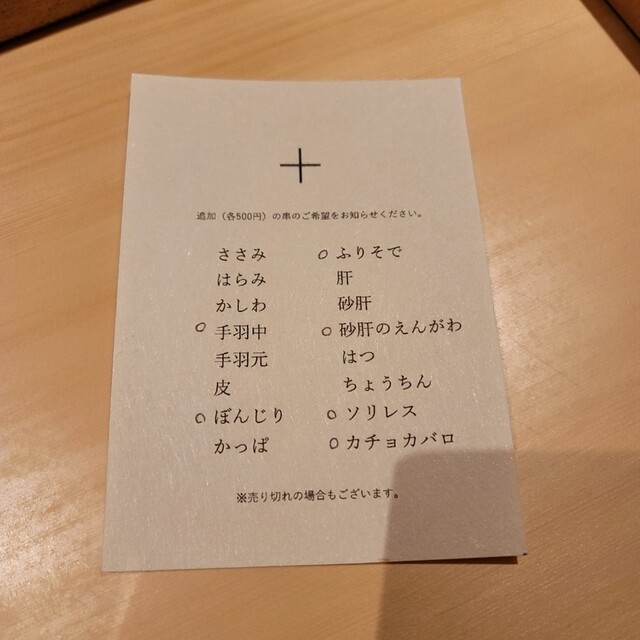 追加（各500円）の串のご希望をお知らせください。
ささみ
はらみ
かしわ
○ 手羽中
手羽元
皮
○ ぼんじり
かっぱ
○ ふりそで
肝
砂肝
○ 砂肝のえんがわ
はつ
ちょうちん
○ ソリレス
○ カチョカバロ
※売り切れの場合もございます。